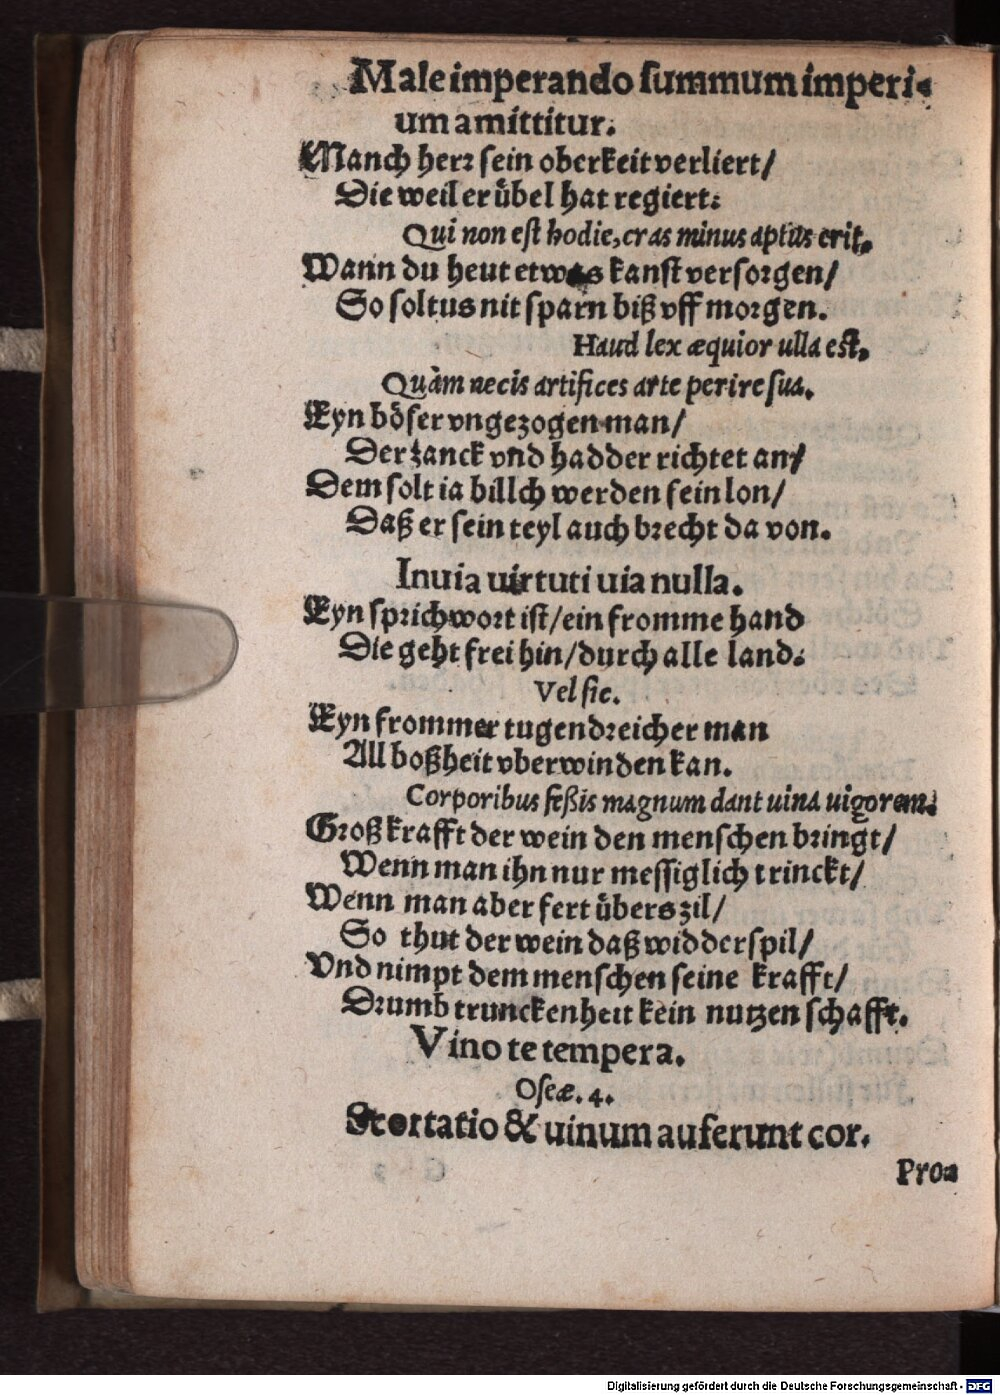 Male imperando summum imperi-
um amittitur.
Manch herr sein oberkeit verliert/
Die weil er übel hat regiert.
Qui non est hodie, cras minus aptus erit.
Wann du heut etwas kanst versorgen/
So soltus nit sparn biß vff morgen.
Haud lex æquior ulla est,
Quàm necis artifices arte perire sua.
Eyn böser vngezogen man/
Der zanck vnd hadder richtet an/
Dem solt ia billch werden sein lon/
Daß er sein teyl auch brecht da von.
Inuia uirtuti uia nulla.
Eyn sprichwort ist/ein fromme hand
Die geht frei hin/durch alle land.
Vel sic.
Eyn frommer tugendreicher man
All boßheit vberwinden kan.
Corporibus feßis magnum dant uina uigorem.
Groß krafft der wein den menschen bringt/
Wenn man ihn nur messiglich trinckt/
Wenn man aber fert übers zil/
So thut der wein daß widderspil/
Vnd nimpt dem menschen seine krafft/
Drumb trunckenheit kein nutzen schafft.
Vino te tempera.
Oseæ. 4.
Scortatio & uinum auferunt cor.
Pro-
Digitalisierung gefördert durch die Deutsche Forschungsgemeinschaft - DFG